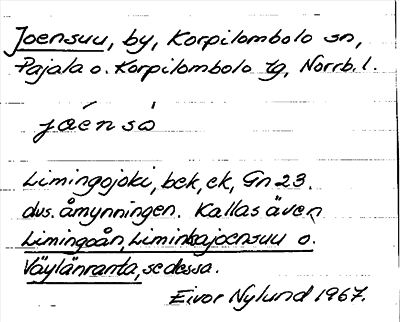 Joensuu, by, Korpilombolo sn,
Pajala o. Korpilombolo tg, Norrb. l.
jóensò
Limingojoki, bek, ek, Gn 23.
dvs. åmynningen. Kallas även
Limingoån, Liminkajoensuu o.
Väylänranta, se dessa.
Eivor Nylund 1967.